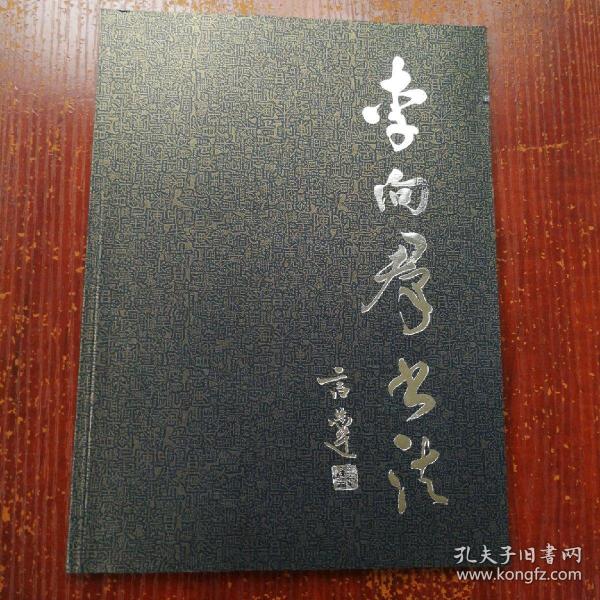 李向群书法
言蓬
孔夫子旧书网
www.kongfz.com